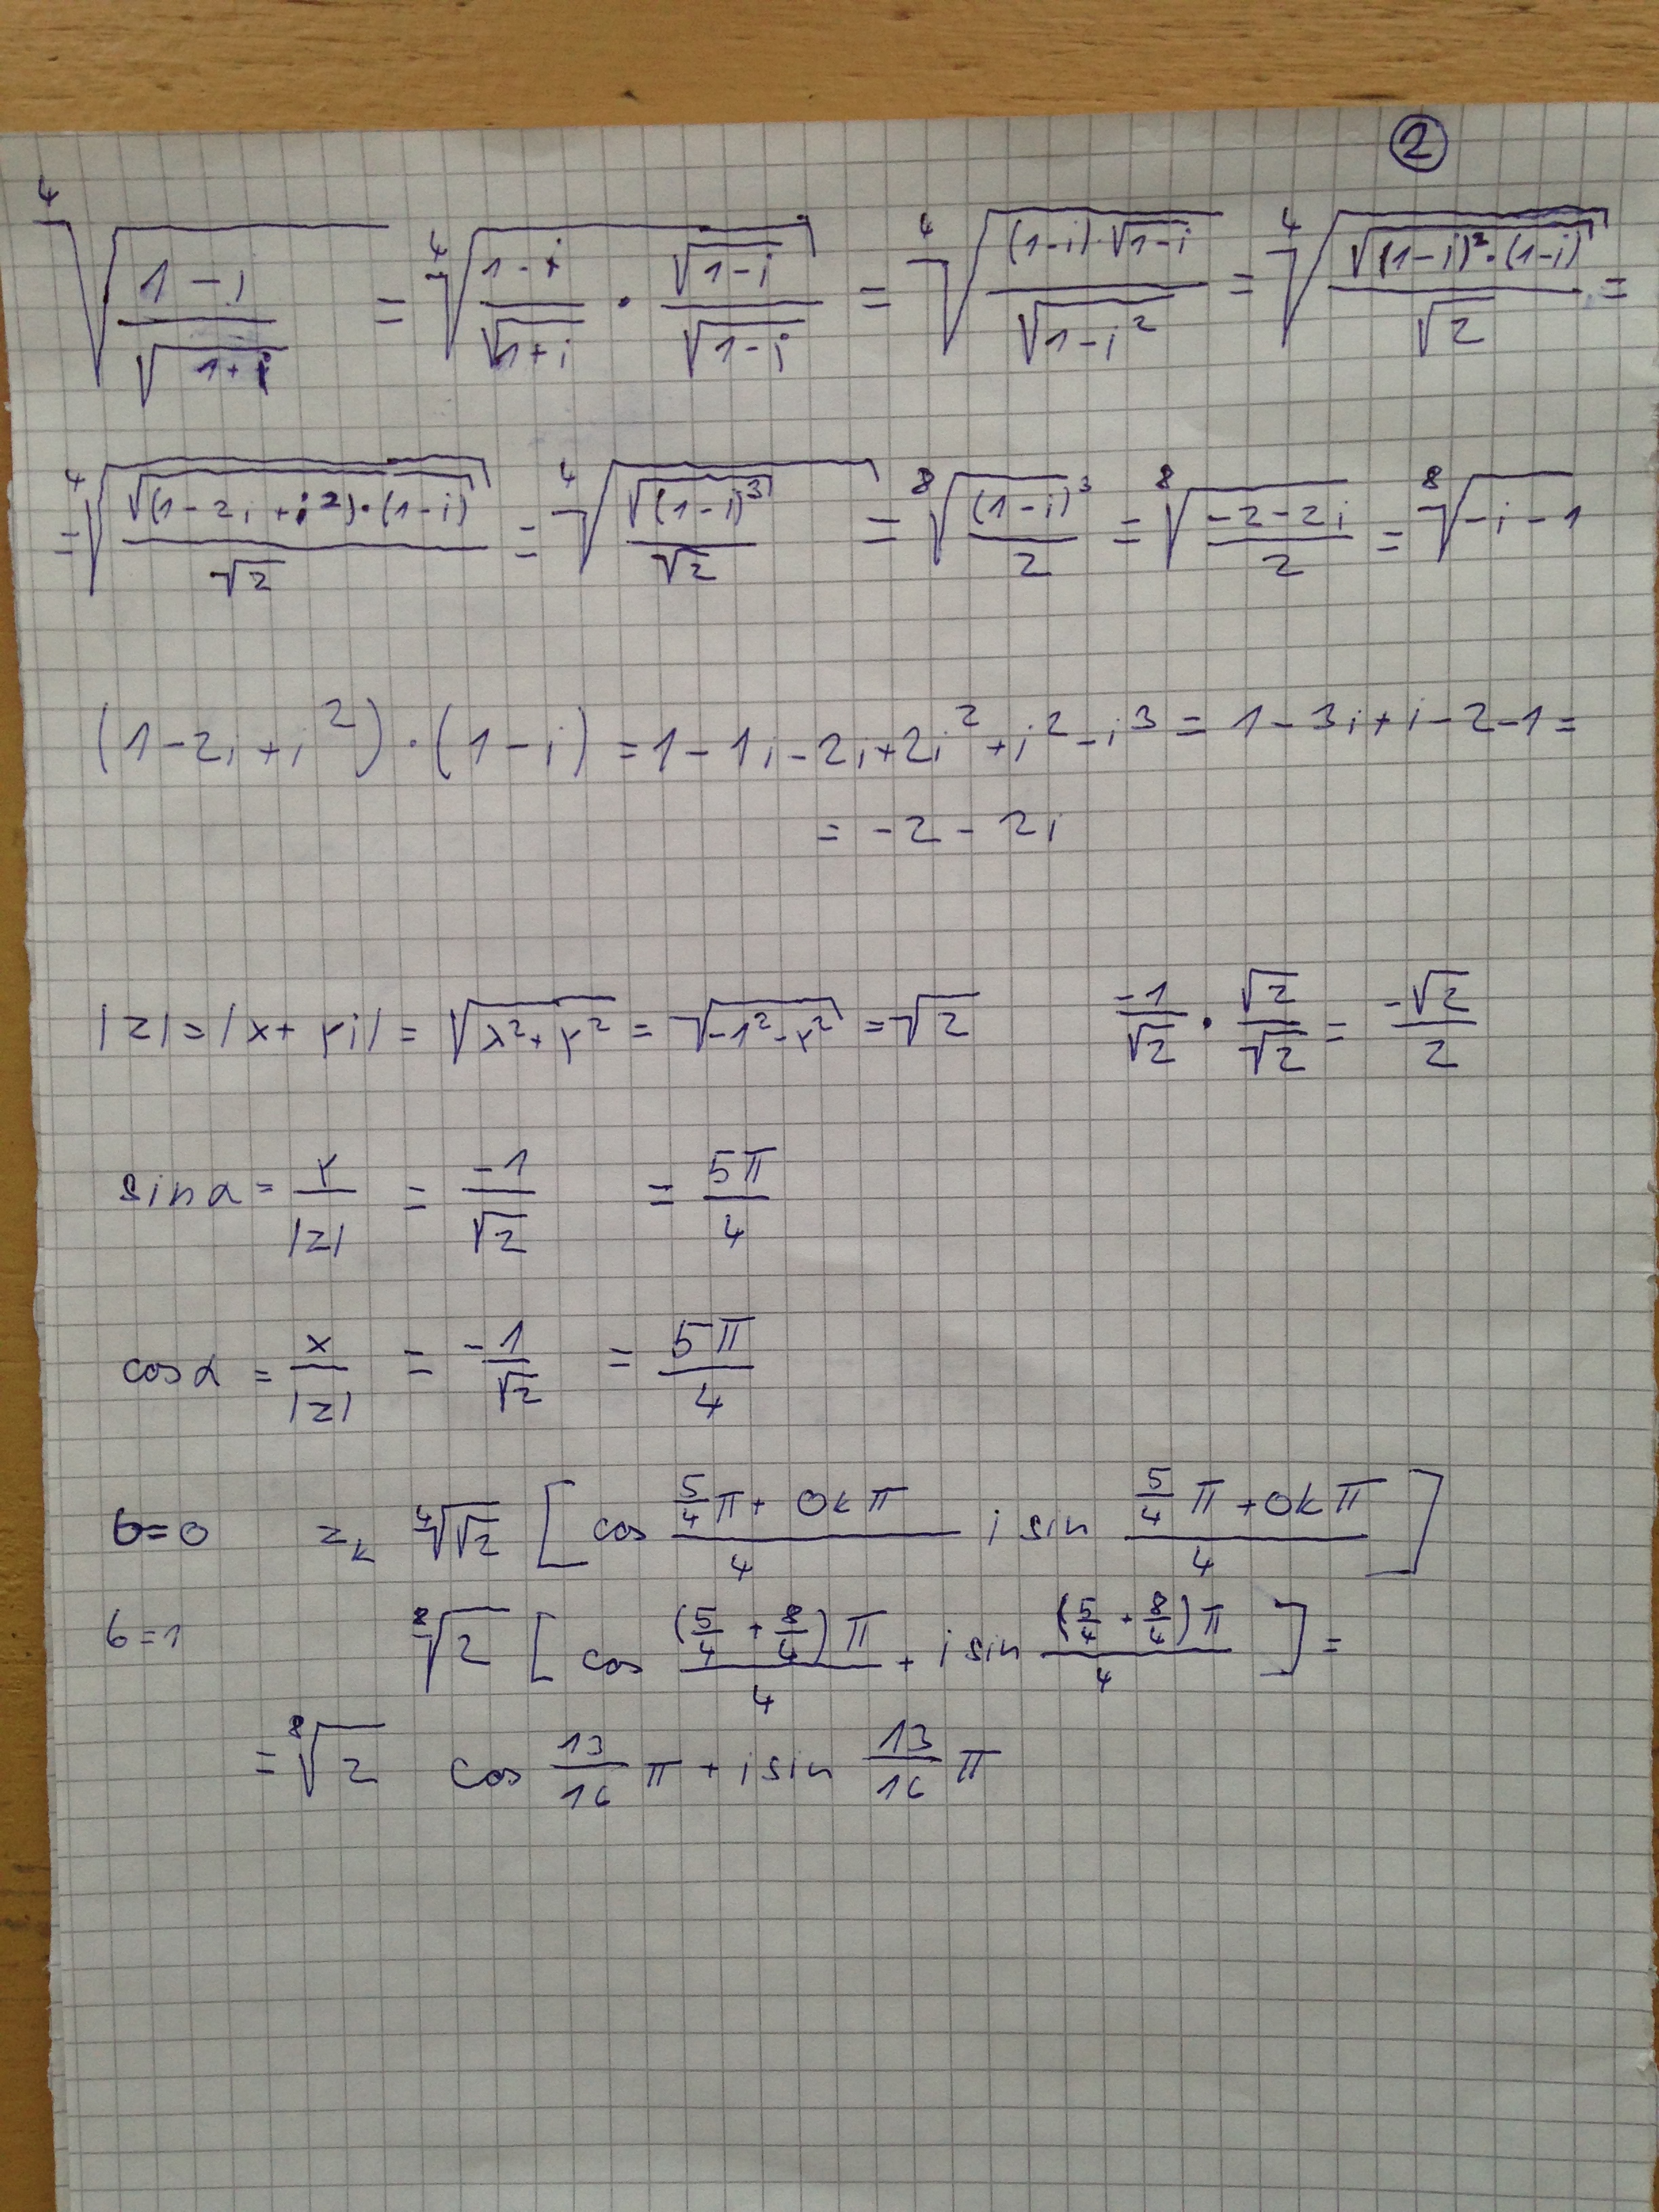 ②
⁴√((1-i)/√(1+i)) = ⁴√((1-i)/√(1+i) · √(1-i)/√(1-i)) = ⁴√((1-i)·√(1-i)/√(1-i²)) = ⁴√(√((1-i)²·(1-i))/√2) =
= ⁴√(√((1-2i+i²)·(1-i))/√2) = ⁴√(√((1-i)³)/√2) = ⁸√((1-i)³/2) = ⁸√((-2-2i)/2) = ⁸√(-i-1)
(1-2i+i²)·(1-i) = 1-1i-2i+2i²+i²-i³ = 1-3i+i-2-1 =
= -2-2i
|z| = |x+yi| = √(x²+y²) = √(-1²-y²) = √2   -1/√2 · √2/√2 = -√2/2
sin α = y/|z| = -1/√2 = 5π/4
cos α = x/|z| = -1/√2 = 5π/4
6=0   z_k ⁴√√2 [cos (5/4 π + 0kπ)/4   i sin (5/4 π + 0kπ)/4]
6=1   ⁸√2 [cos (5/4 + 8/4)π/4 + i sin (5/4 + 8/4)π/4] =
= ⁸√2 cos 13/16 π + i sin 13/16 π